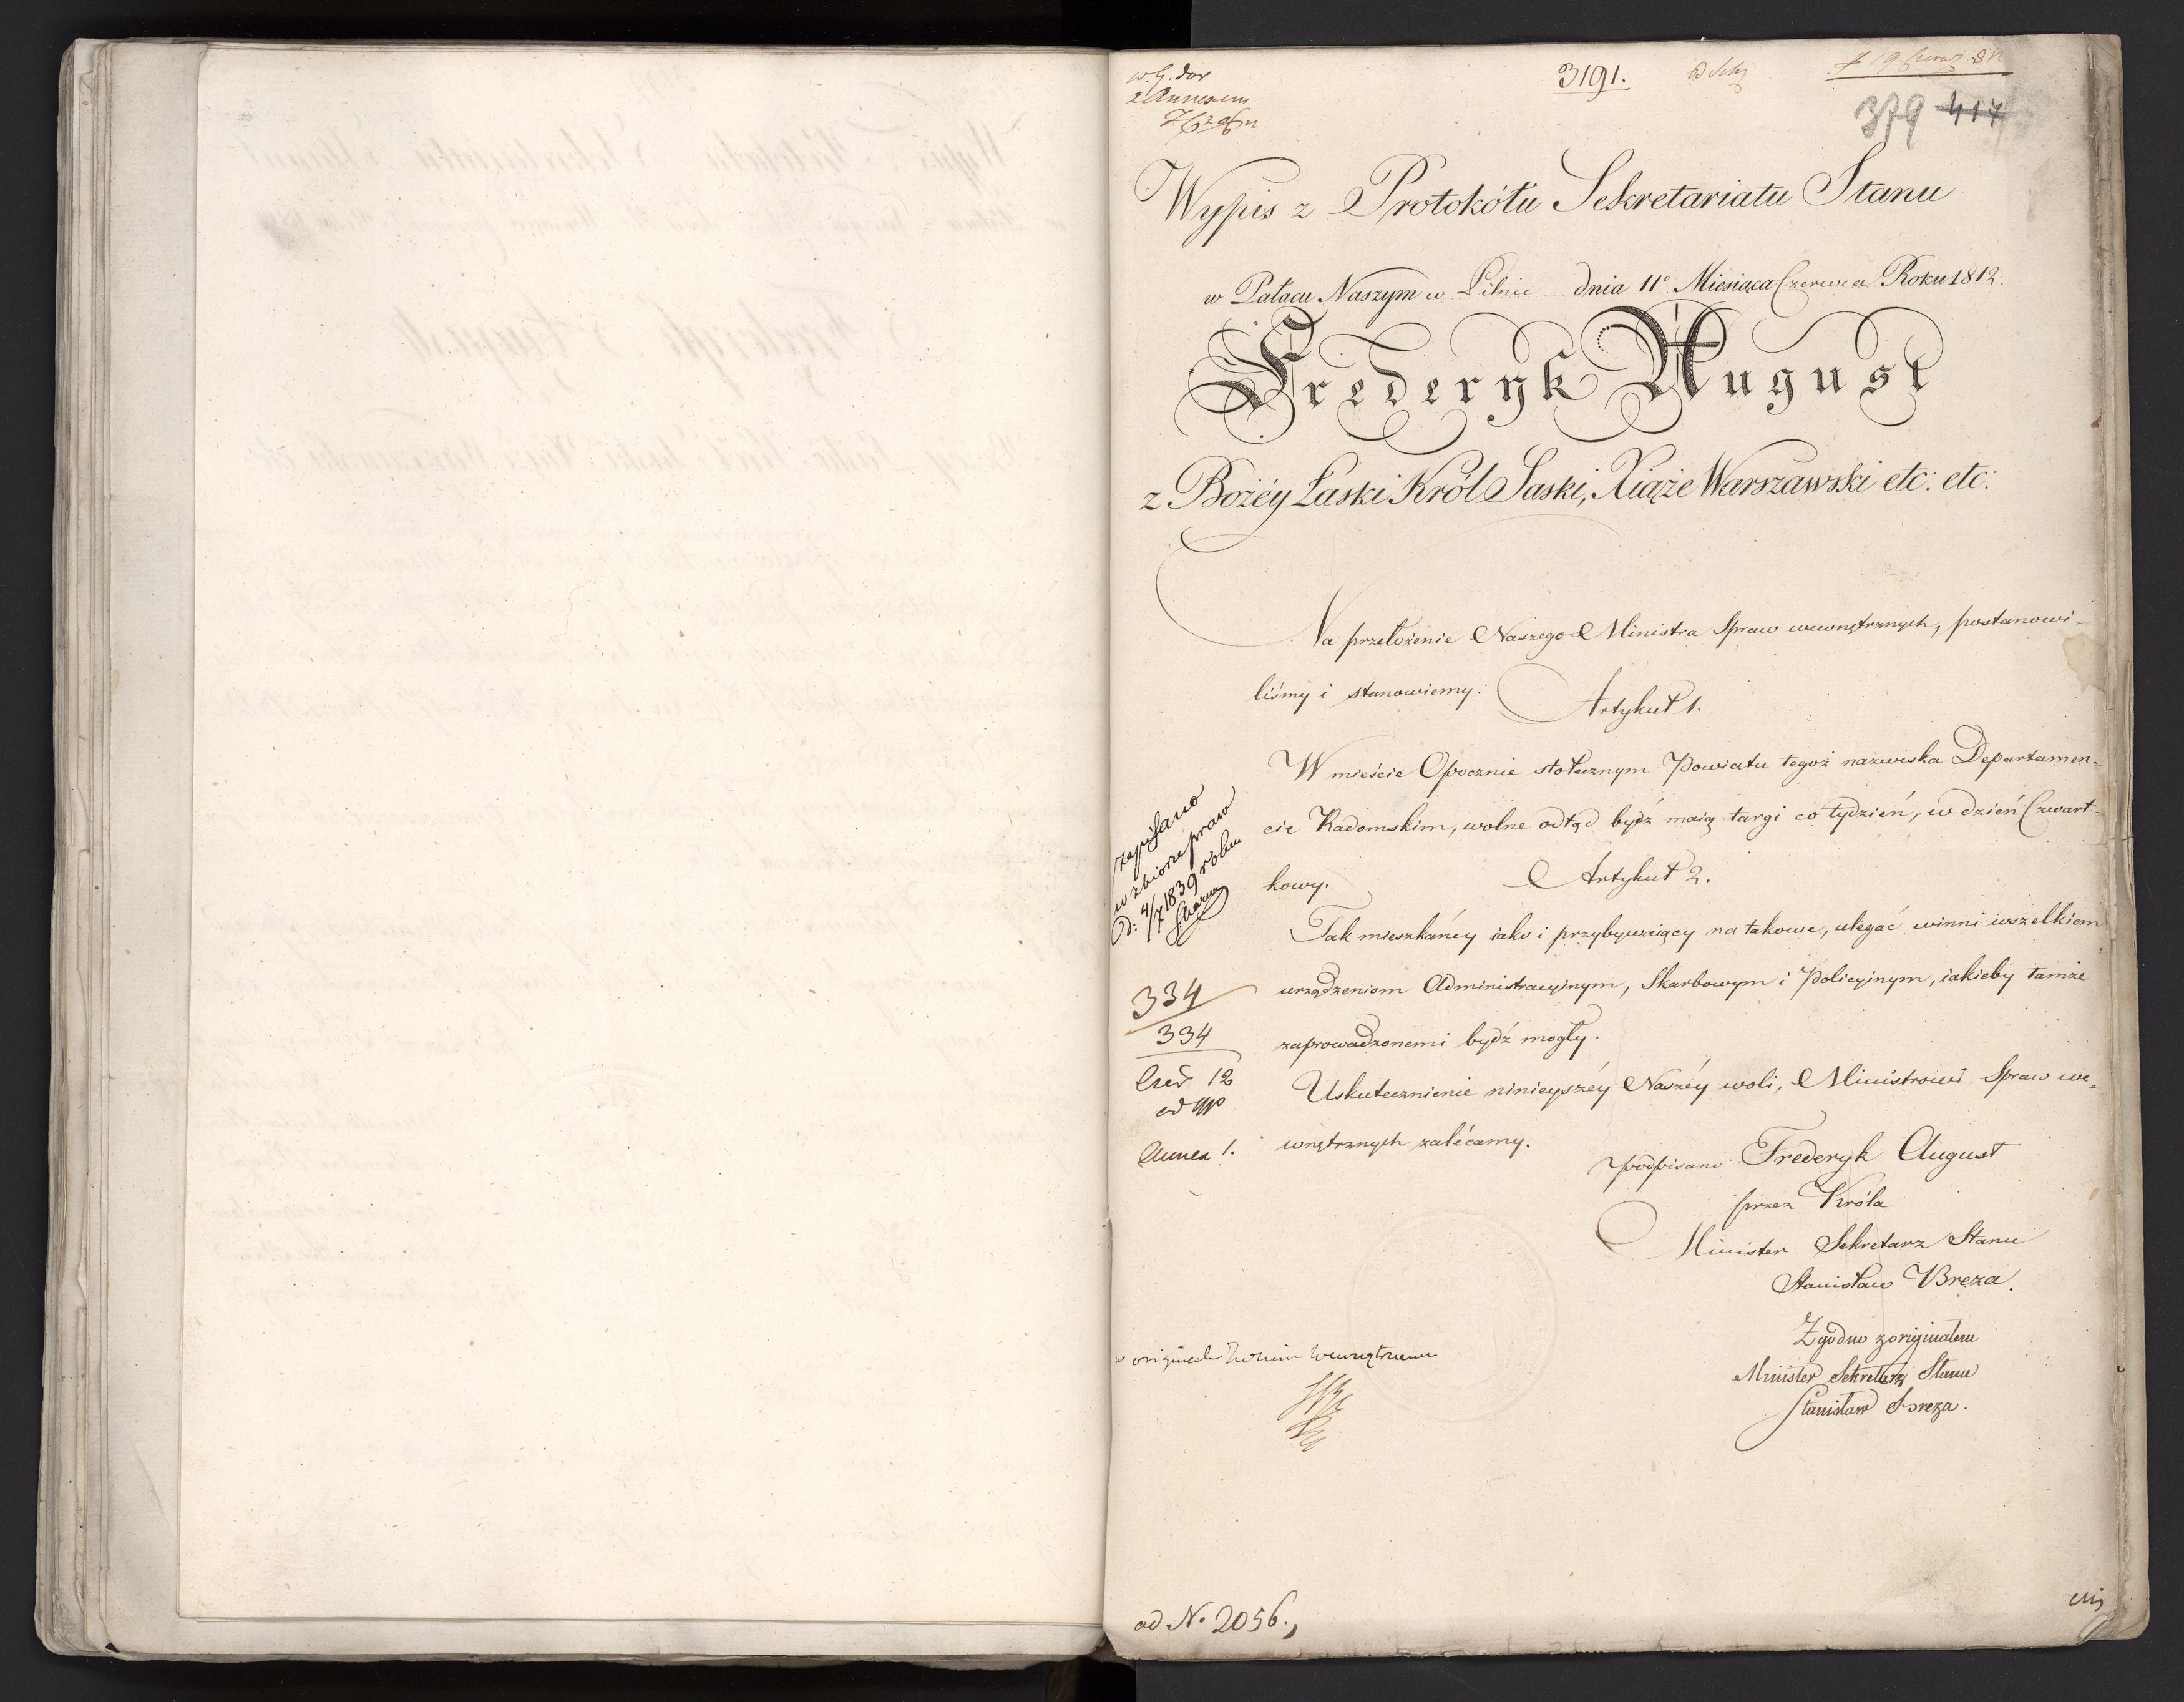 w. G. dor
z Annexem
3191.
379 417
Wypis z Protokółu Sekretariatu Stanu
w Pałacu Naszym w Pilnic dnia 11º Miesiąca Czerwca Roku 1812.
Frederyk August
z Bożéy Łaski Król Saski, Xiąże Warszawski etc: etc:
Na przełożenie Naszego Ministra Spraw wewnętrznych, postanowi-
liśmy i stanowiemy:
Artykuł 1.
W mieście Opocznie stołecznym Powiatu tegoż nazwiska Departamen-
cie Radomskim, wolne odtąd bydź maią targi co tydzień, w dzień Czwart-
kowy.
Artykuł 2.
Tak mieszkańcy iako i przybywaiący na takowe, ulegać winni wszelkiem
urządzeniom Administracyinym, Skarbowym i Policyinym, iakieby tamże
zaprowadzonemi bydź mogły.
Uskutecznienie ninieyszéy Naszéy woli, Ministrowi Spraw we-
wnętrznych zalécamy.
podpisano Frederyk August
przez Króla
Minister Sekretarz Stanu
Stanisław Breza.
Zgodno z originałem
Minister Sekretarz Stanu
Stanisław Breza.
zapisano
w zbiorze praw
d: 4/7 1839 roku
334
334
12
Annex 1.
w originale
ad No 2056.